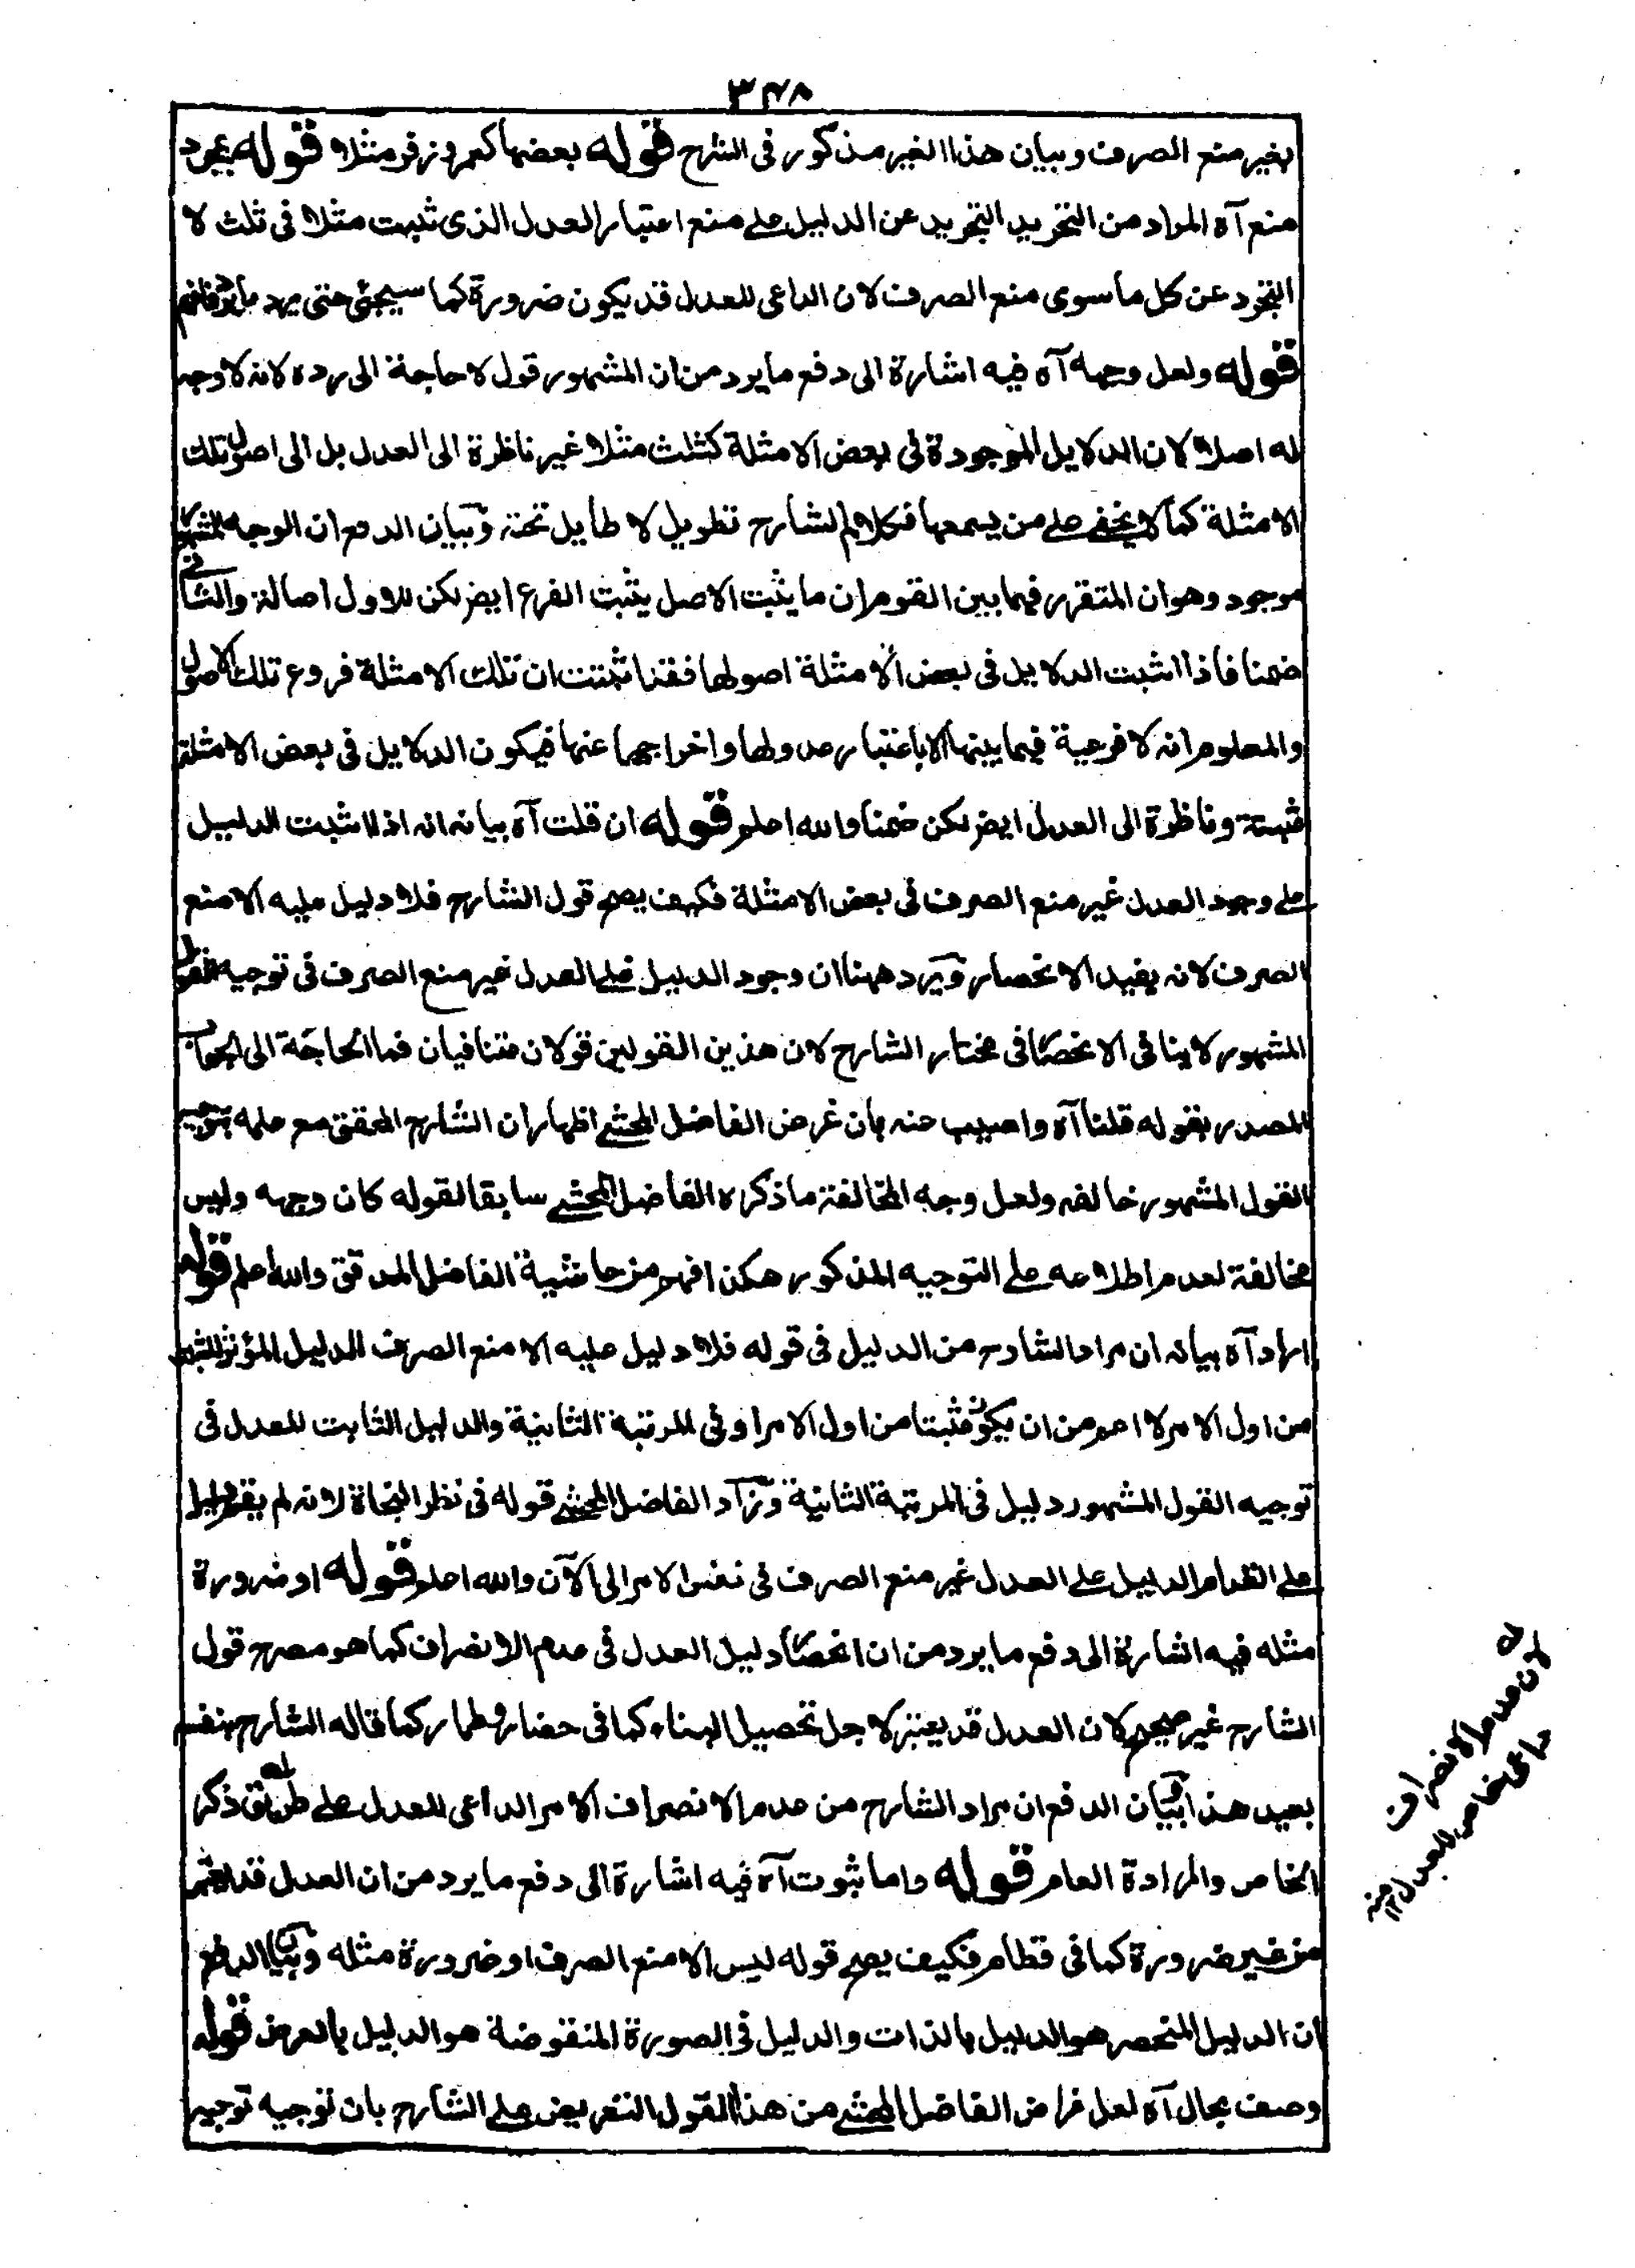 ٣٤٨
بغير منع الصرف وبيان هذا الغير مذكور فى الشرح قوله بعضها كعمر وزفر مثلا قوله بمجرد
منع آه المراد من التجريد التجريد عن الدليل على منع اعتبار العدل الذى ثبت مثلا فى ثلث لا
التجرد عن كل ما سوى منع الصرف لان الداعى للعدل قد يكون ضرورة كما سيجئ حتى يرد ما يرد فافهم
قوله ولعل وجهه آه فيه اشارة الى دفع ما يرد من ان المشهور قول لا حاجة الى رده لانه لا وجه
له اصلا لان الدلايل الموجودة فى بعض الامثلة كثلث مثلا غير ناظرة الى العدل بل الى اصول تلك
الامثلة كما لا يخفى على من يسمعها فكلام الشارح تطويل لا طايل تحته وبيان الدفع ان الوجه للمشهور
موجود وهو ان المتقرر فيما بين القوم ان ما يثبت الاصل يثبت الفرع ايضا لكن للاول اصالة والثانى
ضمنا فاذا اثبت الدلايل فى بعض الامثلة اصولها فقد اثبتت ان تلك الامثلة فروع تلك الاصول
والمعلوم انه لا فرعية فيما بينها الا باعتبار عدولها واخراجها عنها فيكون الدلايل فى بعض الامثلة
مثبتة وناظرة الى العدل ايضا لكن ضمنا والله اعلم قوله ان قلت آه بيانه انه اذا ثبت الدليل
على وجود العدل غير منع الصرف فى بعض الامثلة فكيف يصح قول الشارح فلا دليل عليه الا منع
الصرف لانه يفيد الانحصار ويرد ههنا ان وجود الدليل على العدل غير منع الصرف فى توجيه القول
المشهور لا ينافى الانحصار فى مختار الشارح لان هذين القولين قولان متنافيان فما الحاجة الى الجواب
المصدر بقوله قلنا آه واجيب عنه بان غرض الفاضل المحشى اظهار ان الشارح المحقق مع علمه بتوجيه
القول المشهور خالفه ولعل وجه المخالفة ما ذكره الفاضل المحشى سابقا لقوله كان وجهه وليس
مخالفة لعدم اطلاعه على التوجيه المذكور هكذا فهم من حاشية الفاضل المدقق والله اعلم قوله
اراد آه بيانه ان مراد الشارح من الدليل فى قوله فلا دليل عليه الا منع الصرف الدليل المؤثر المثبت
من اول الامر لا اعم من ان يكون مثبتا من اول الامر او فى المرتبة الثانية والدليل الثابت للعدل فى
توجيه القول المشهور دليل فى المرتبة الثانية وزاد الفاضل المحشى قوله فى نظر النحاة لانه لم يقم دليل
على انعدام الدليل على العدل غير منع الصرف فى نفس الامر الى الآن والله اعلم قوله او ضرورة
مثله فيه اشارة الى دفع ما يرد من ان انحصار دليل العدل فى عدم الانصراف كما هو مصرح قول
الشارح غير صحيح لان العدل قد يعتبر لاجل تحصيل البناء كما فى حضار وطمار كما قاله الشارح بنفسه
بعيد هذا وبيان الدفع ان مراد الشارح من عدم الانصراف الامر الداعى للعدل على طريق ذكر
الخاص والمرادة العام قوله واما ثبوت آه فيه اشارة الى دفع ما يرد من ان العدل قد اعتبر
من غير ضرورة كما فى قطام فكيف يصح قوله ليس الا منع الصرف او ضرورة مثله وبيان الدفع
ان الدليل المنحصر هو الدليل بالذات والدليل فى الصورة المنقوضة هو الدليل بالعرض قوله
وصف بحال آه لعل غرض الفاضل المحشى من هذا القول التعريض على الشارح بان توجيه توجيه
له
لان عدم الانصراف
داعى خاص للعدل ١٢ منه